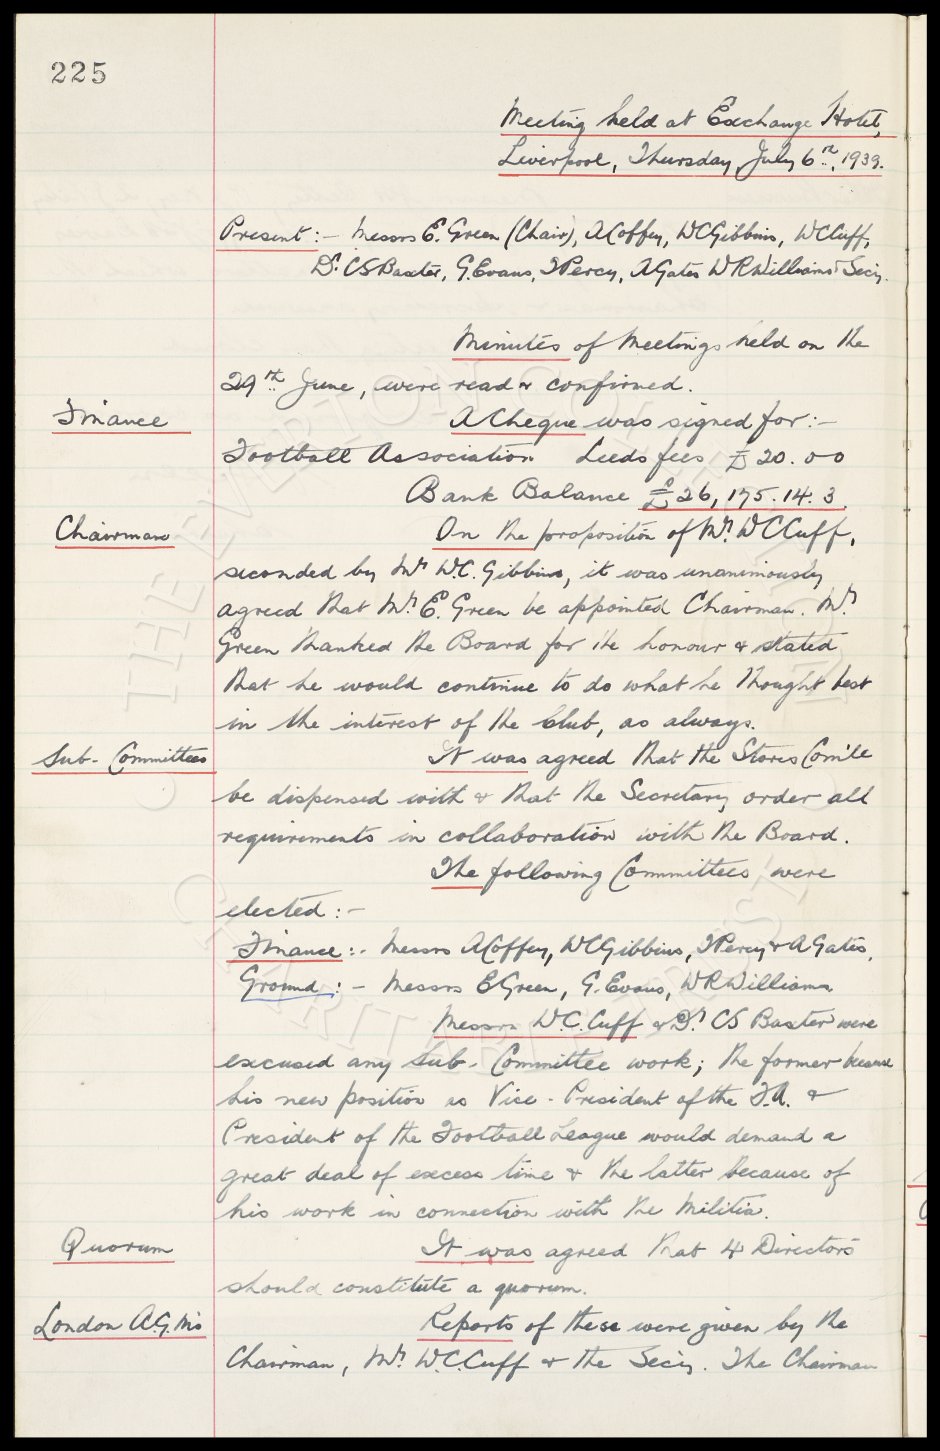 225
Meeting held at Exchange Hotel,
Liverpool, Thursday, July 6th, 1939.
Present:- Messrs E. Green (Chair), A Coffey, WC Gibbins, WC Cuff,
Dr. CS Baxter, G. Evans, T Percy, A Gates WR Williams & Secy.
Minutes of Meetings held on the
29th June, were read & confirmed.
Finance
A Cheque was signed for:-
Football Association Leeds fees £20.00
Bank Balance £26,175.14.3.
Chairman
On the proposition of Mr. WC Cuff,
seconded by Mr W.C. Gibbins, it was unanimously
agreed that Mr. E. Green be appointed Chairman. Mr.
Green thanked the Board for the honour & stated
that he would continue to do what he thought best
in the interest of the Club, as always.
Sub-Committees
It was agreed that the Stores Com'tte
be dispensed with & that the Secretary order all
requirements in collaboration with the Board.
The following Committees were
elected:-
Finance:- Messrs A Coffey, WC Gibbins, T Percy & A Gates.
Ground:- Messrs E Green, G. Evans, WR Williams
Messrs W.C. Cuff & Dr. CS Baxter were
excused any Sub-Committee work; the former because
his new position as Vice-President of the F.A. &
President of the Football League would demand a
great deal of excess time & the latter because of
his work in connection with the Militia.
Quorum
It was agreed that 4 Directors
should constitute a quorum.
London A.G.Ms
Reports of these were given by the
Chairman, Mr. W.C. Cuff & the Secy. The Chairman
THE EVERTON COLLECTION
CHARITABLE TRUST